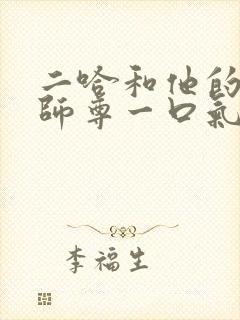 二哈和他的
师尊一口氣
李福生